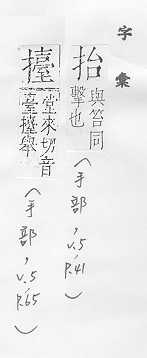 字彙
抬 與笞同
擊也
(手部, V.5, P.41)
擡 堂來切音
臺擡舉
(手部, V.5, P.65)